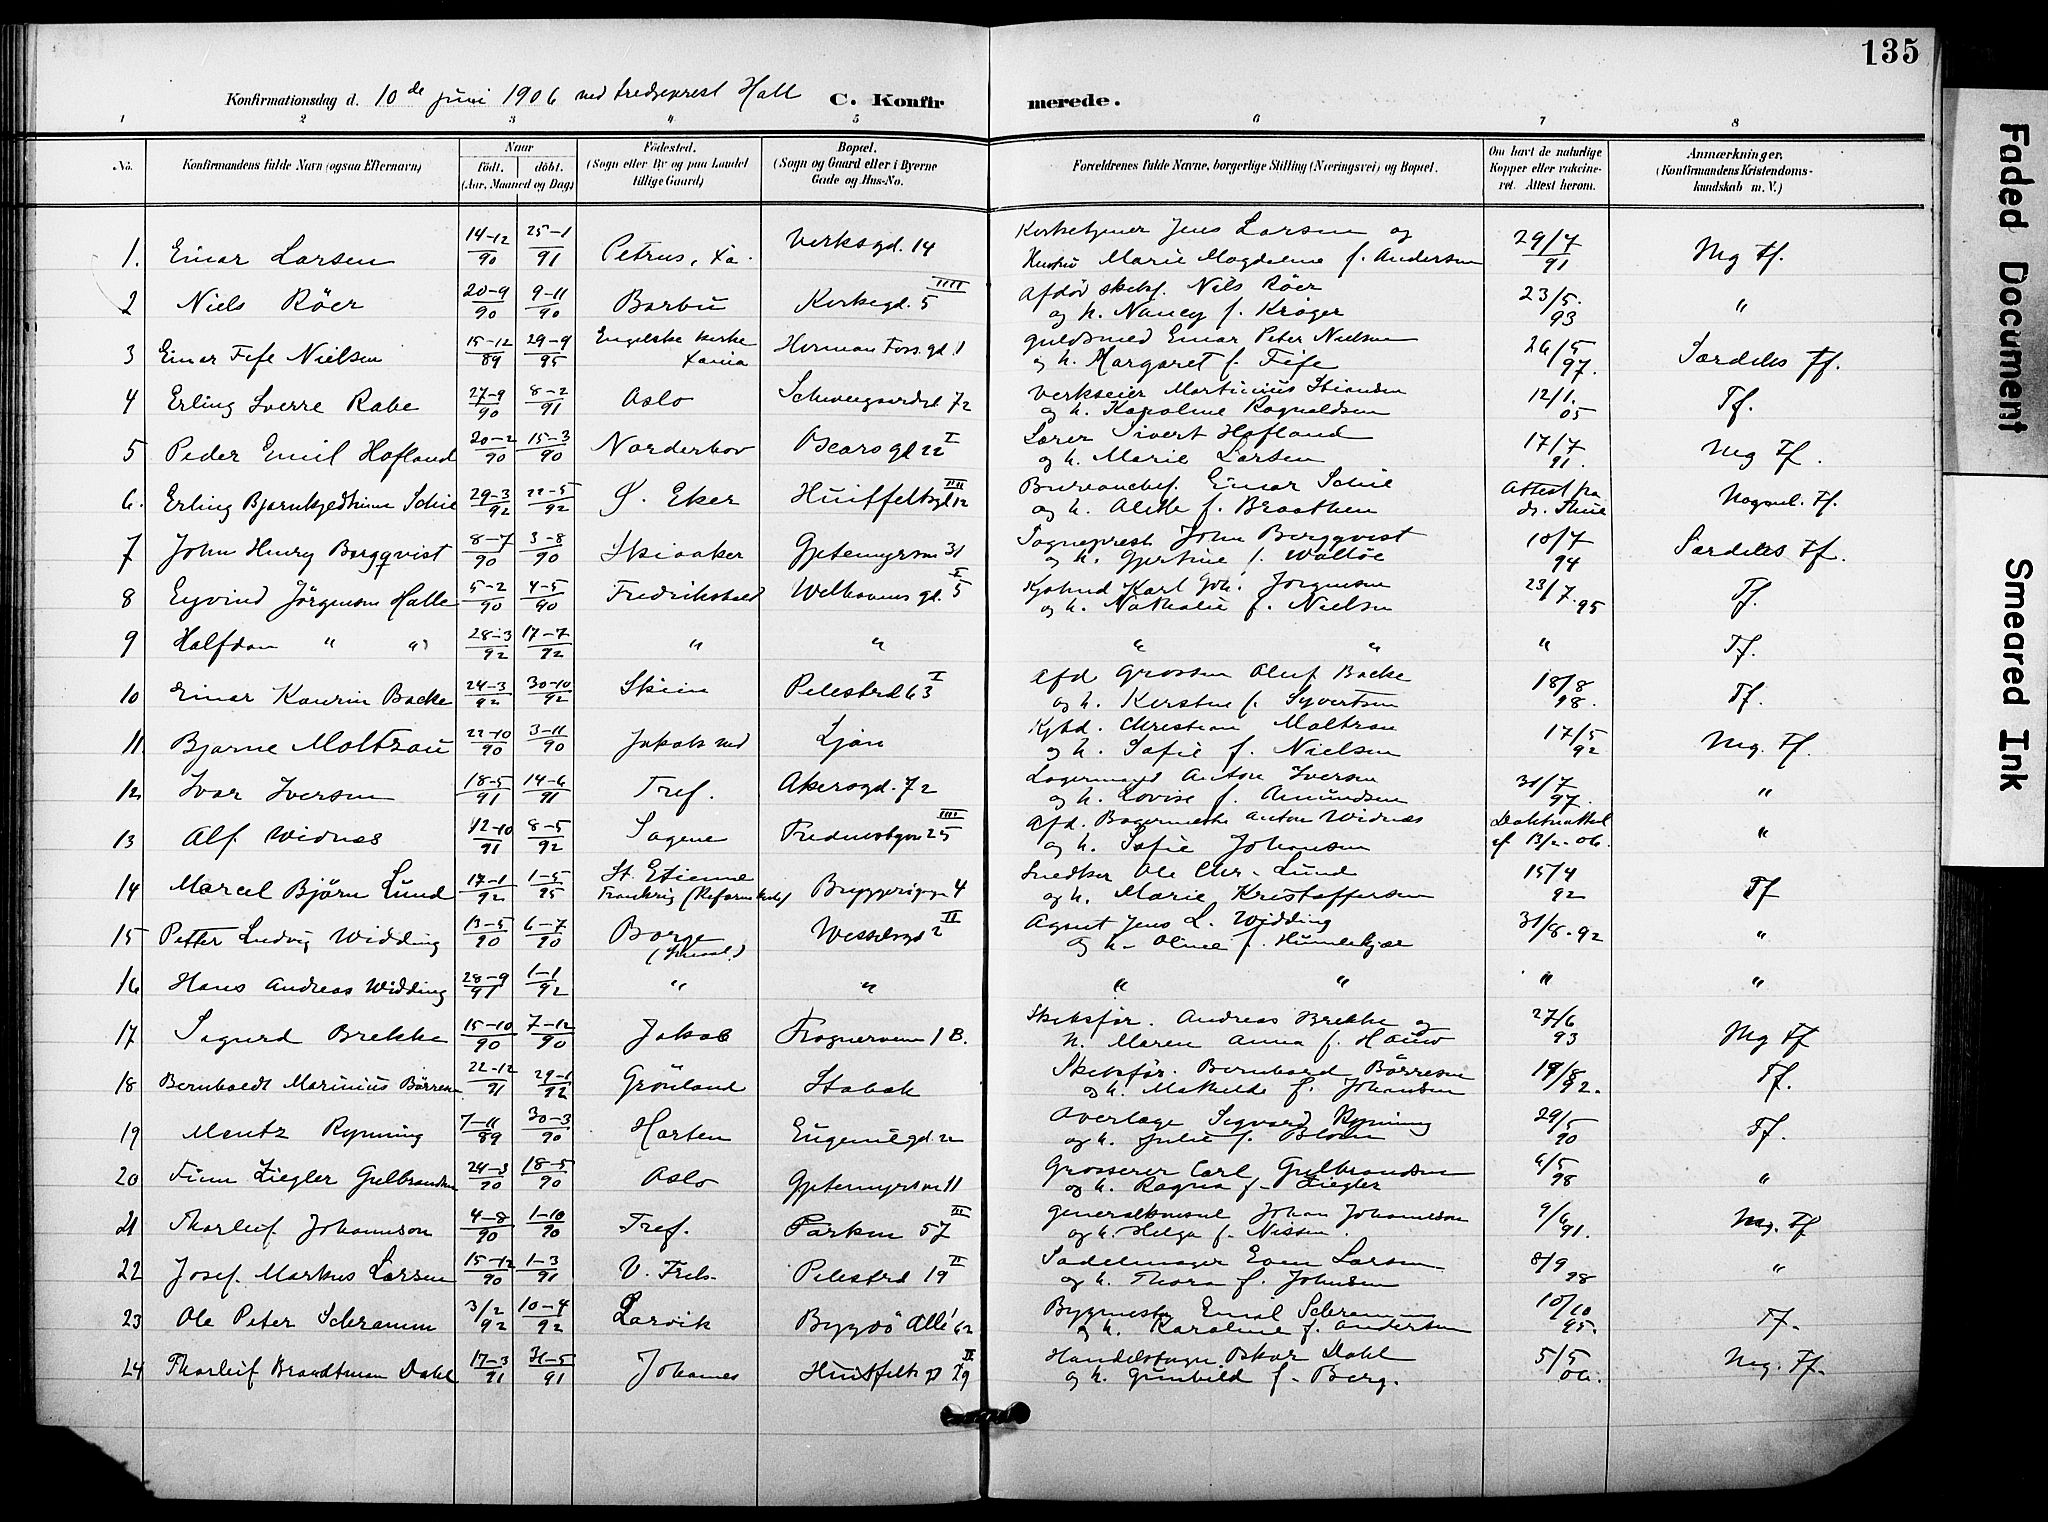 135
Konfirmationsdag d. 10de juni 1906 ved Hall C. Konfirmerede.
1 2 3 4 5 6 7 8
No. Konfirmandens fulde Navn (ogsaa Efternavn) Naar født. døbt. (Aar, Maaned og Dag) Fødested. (Sogn eller By og paa Landet tillige Gaard) Bopæl. (Sogn og Gaard eller i Byerne Gade og Hus-No. Forældrenes fulde Navne, borgerlige Stilling (Næringsvei) og Bopæl. Om havt de naturlige Kopper eller vakcineret. Attest herom. Anmærkninger. (Konfirmandens Kristendomskundskab m. V.)
1. Einar Larsen 14-12/90 25-1/91 Petrus, Xa. Verksgd. 14 Kirketjener Jens Larsen og Hustru Marie Magdalene f. Andersen 29/7 91 Mg Tf.
2 Niels Röer 20-9/90 9-11/90 Barbu Kirkegd. 5 IIII Afdøe skibsf. Nils Röer og h. Nancy f. Kröger 23/5. 93 "
3 Einar Fife Nielsen 15-12/89 29-9/95 Engelske kirke Xania Herman Foss gd. 1 guldsmed Einar Peter Nielsen og h. Margaret f. Fife 26/5 97. Særdeles Tf.
4 Erling Sverre Rabe 27-9/90 8-2/91 Oslo Schweigaardsgd. 72 Verkseier Martinius og h. Karoline Ragnaldsen 12/1. 05 Tf.
5 Peder Emil Hofland 20-2/90 15-3/90 Norderhov gd 22 I Lærer Sivert Hofland og h. Marie Larsen 17/7 91. Mg Tf.
6. Erling 29-3/92 22-5/92 Ø. Eker Huitfeltsgd 12 III Bureauchef. Einar og h. Alette f. Braathen Attest fra dr. Thue Nogenl. Tf.
7 John Henry Bergqvist 8-7/90 3-8/90 Skiaaker Gjetemyrsvn 31 Sogneprest John Bergqvist og h. Gjertine f. Walløe 10/7 94 Særdeles Tf.
8 Eyvind Jörgensen Halle 5-2/90 4-5/90 Fredrikshald Welhavens gd. 5 I Kjøbmd Karl Joh. Jörgensen og h. Nathalie f. Nielsen 23/7. 95 Tf.
9 Halfdan " " 28-3/92 17-7/92 " " " " " Tf.
10 Einar Kaurin Backe 24-3/92 30-10/92 Skien Pilestrd 63 I Afd Grosser Oluf Backe og h. Kirstine f. Syvertsen 18/8 98. Tf.
11. Bjarne Moltzau 22-10/90 3-11/90 Jakobs Ljan Kjbd. Christian Moltzau og h. Sofie f. Nielsen 17/5 92 Mg. Tf.
12. Ivar Iversen 18-5/91 14-6/91 Tref. Akersgd. 72 Lagermand Anton Iversen og h. Lovise f. Amundsen 31/7 97. "
13 Alf Widnæs 12-10/91 8-5/92 Sagene Fredensborgvn 25 IIII Afd. Bagermester Anton Widnæs og h. Sofie Johansen af 13/2-06. "
14 Marcel Björn Lund 17-1/92 1-5/95 St. Etienne Frankrig (Reform. kirke) Bryggerigangen 4 Snedker Ole Chr. Lund og h. Marie Kristoffersen 15/4 92 Tf
15 Petter Ludvig Widding 13-5/90 6-7/90 Borge (Smaal.) Wesselsgd 2 II Agent Jens L. Widding og h. Oline f. Humlekjær 31/8-92 "
16 Hans Andreas Widding 28-9/91 1-1/92 " " " " " "
17 Sigurd Brekke 15-10/90 7-12/90 Jakob Frognerveien 1 B. Skibsfør. Andreas Brekke og h. Maren Anna f. 27/6 93 Mg Tf
18 Bernhardt Marinius Börresen 22-12/91 29-1/92 Grönland Stabæk Skibsfør. Bernhard Börresen og h. Mathilde f. Johansen 19/8 92. Tf.
19 Mentz Rynning 7-11/89 30-3/90 Horten Eugeniegd. 22 Overlæge Sigvard Rynning og h. Julie f. Blom 29/5 90 Tf.
20 Finn Ziegler Gulbrandsen 24-3/90 18-5/90 Oslo Gjetemyrsvn 11 Grosserer Carl Gulbrandsen og h. Ragna f. Ziegler 6/5 98 "
21 Thorleif Johannson 4-8/90 1-10/90 Tref. Parkvn 57 III Generalkonsul Johan Johannson og h. Helga f. Nissen. 9/6 91. Mg. Tf
22 Josef Markus Larsen 15-12/90 1-3/91 V. Frels. Pilestrd 19 II Sadelmager Even Larsen og h. Thora f. Johnsen 8/9 98 "
23 Ole Peter Schramm 3/2 92 10-4/92 Larvik Bygdö Alle 62 Bygmester Emil Schramm og h. Karoline f. Andersen 10/10 95. Tf.
24 Thorleif Brandtman Dahl 17-3/91 31-5/91 Johannes Huitfelts gd 29 II Handelsfuldm. Oskar Dahl og h. Gunhild f. Berg. 5/5 06. Mg. Tf.
Faded Document
Smeared Ink